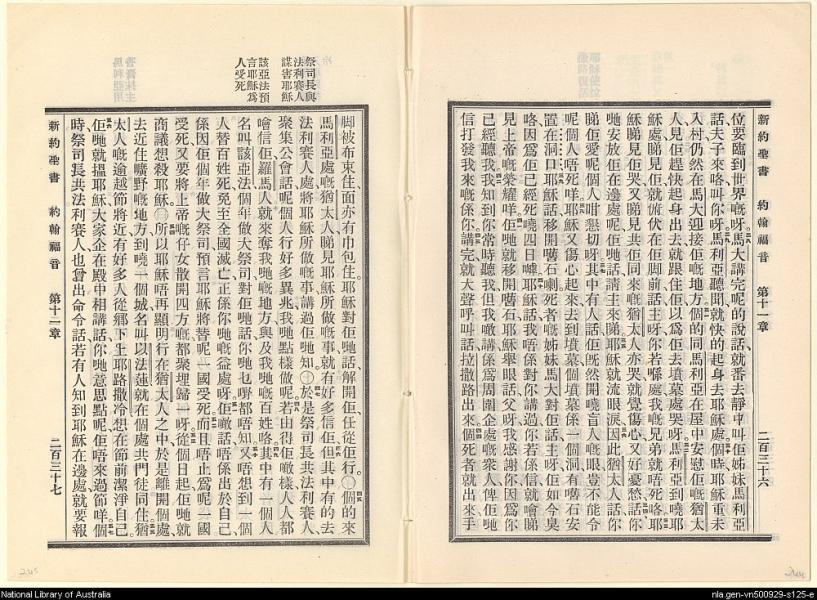 新約聖書 約翰福音 第十一章 二百三十六
位要臨到世界嘅呀馬大講完呢的說話就番去靜中叫佢姊妹馬利亞
話夫子來咯叫你呀馬利亞聽聞就快的起身去耶穌處個時耶穌重未
入村仍然在馬大迎接佢嘅地方個的同馬利亞在屋中安慰佢嘅猶太
人見佢趕快起身出去就跟住佢以爲佢去墳墓處哭呀馬利亞到嘵耶
穌處睇見佢就俯伏在佢脚前話主呀你若喺處我嘅兄弟就唔死咯耶
穌睇見佢哭又睇見共佢同來嘅猶太人亦哭就覺傷心又好憂愁話你
哋安放佢在邊處呢佢哋話請主來睇耶穌就流眼淚因此猶太人話你
睇佢愛呢個人咁懇切呀其中有人話佢旣然開嘵盲人嘅眼豈不能令
呢個人唔死咩耶穌又傷心起來去到墳墓個墳墓係一個洞有嚿石安
置在洞口耶穌話移開嚿石喇死者嘅姊妹馬大對佢話主呀佢如今臭
咯因爲佢已經死嘵四日嘑耶穌話我唔係對你講過你若係信就會睇
見上帝嘅榮耀咩佢哋就移開嚿石耶穌舉眼話父呀我感謝你因爲你
已經聽我我知到你常時聽我但我噉講係爲周圍企處嘅衆人俾佢哋
信打發我來嘅係你講完就大聲呼叫話拉撒路出來個死者就出來手
祭司長與
法利賽人
謀害耶穌
該亞法預
言耶穌爲
人受死
脚被布束住面亦有巾包住耶穌對佢哋話解開佢任從佢行〇個的來
馬利亞處嘅猶太人睇見耶穌所做嘅事就有好多信佢但其中有的去
法利賽人處將耶穌所做嘅事講過佢哋知〇於是祭司長共法利賽人
聚集公會話呢個人行好多異兆我哋點樣做呢若由得佢噉樣人人都
會信佢羅馬人就來奪我哋嘅地方與及我哋嘅百姓咯其中有一個人
名叫該亞法個年做大祭司對佢哋話你哋乜嘢都唔知又唔想到一個
人替百姓死免至全國滅亡正係你哋嘅益處呀佢噉話唔係出於自己
係因佢個年做大祭司預言耶穌將替呢一國受死而且唔止爲呢一國
受死又要將上帝嘅仔女散開四方嘅都聚埋歸一呀從個日起佢哋就
商議想殺耶穌〇所以耶穌唔再顯明行在猶太人之中於是離開個處
去近住曠野嘅地方到嘵一個城名叫以法蓮就在個處共門徒同住猶
太人嘅逾越節將近有好多人從鄉下上耶路撒冷想在節前潔淨自己
佢哋就搵耶穌大家企在殿中相講話你哋意思點呢佢唔來過節咩個
時祭司長共法利賽人也曾出命令話若有人知到耶穌在邊處就要報
新約聖書 約翰福音 第十二章 二百三十七
National Library of Australia
nla.gen-vn500929-s125-e